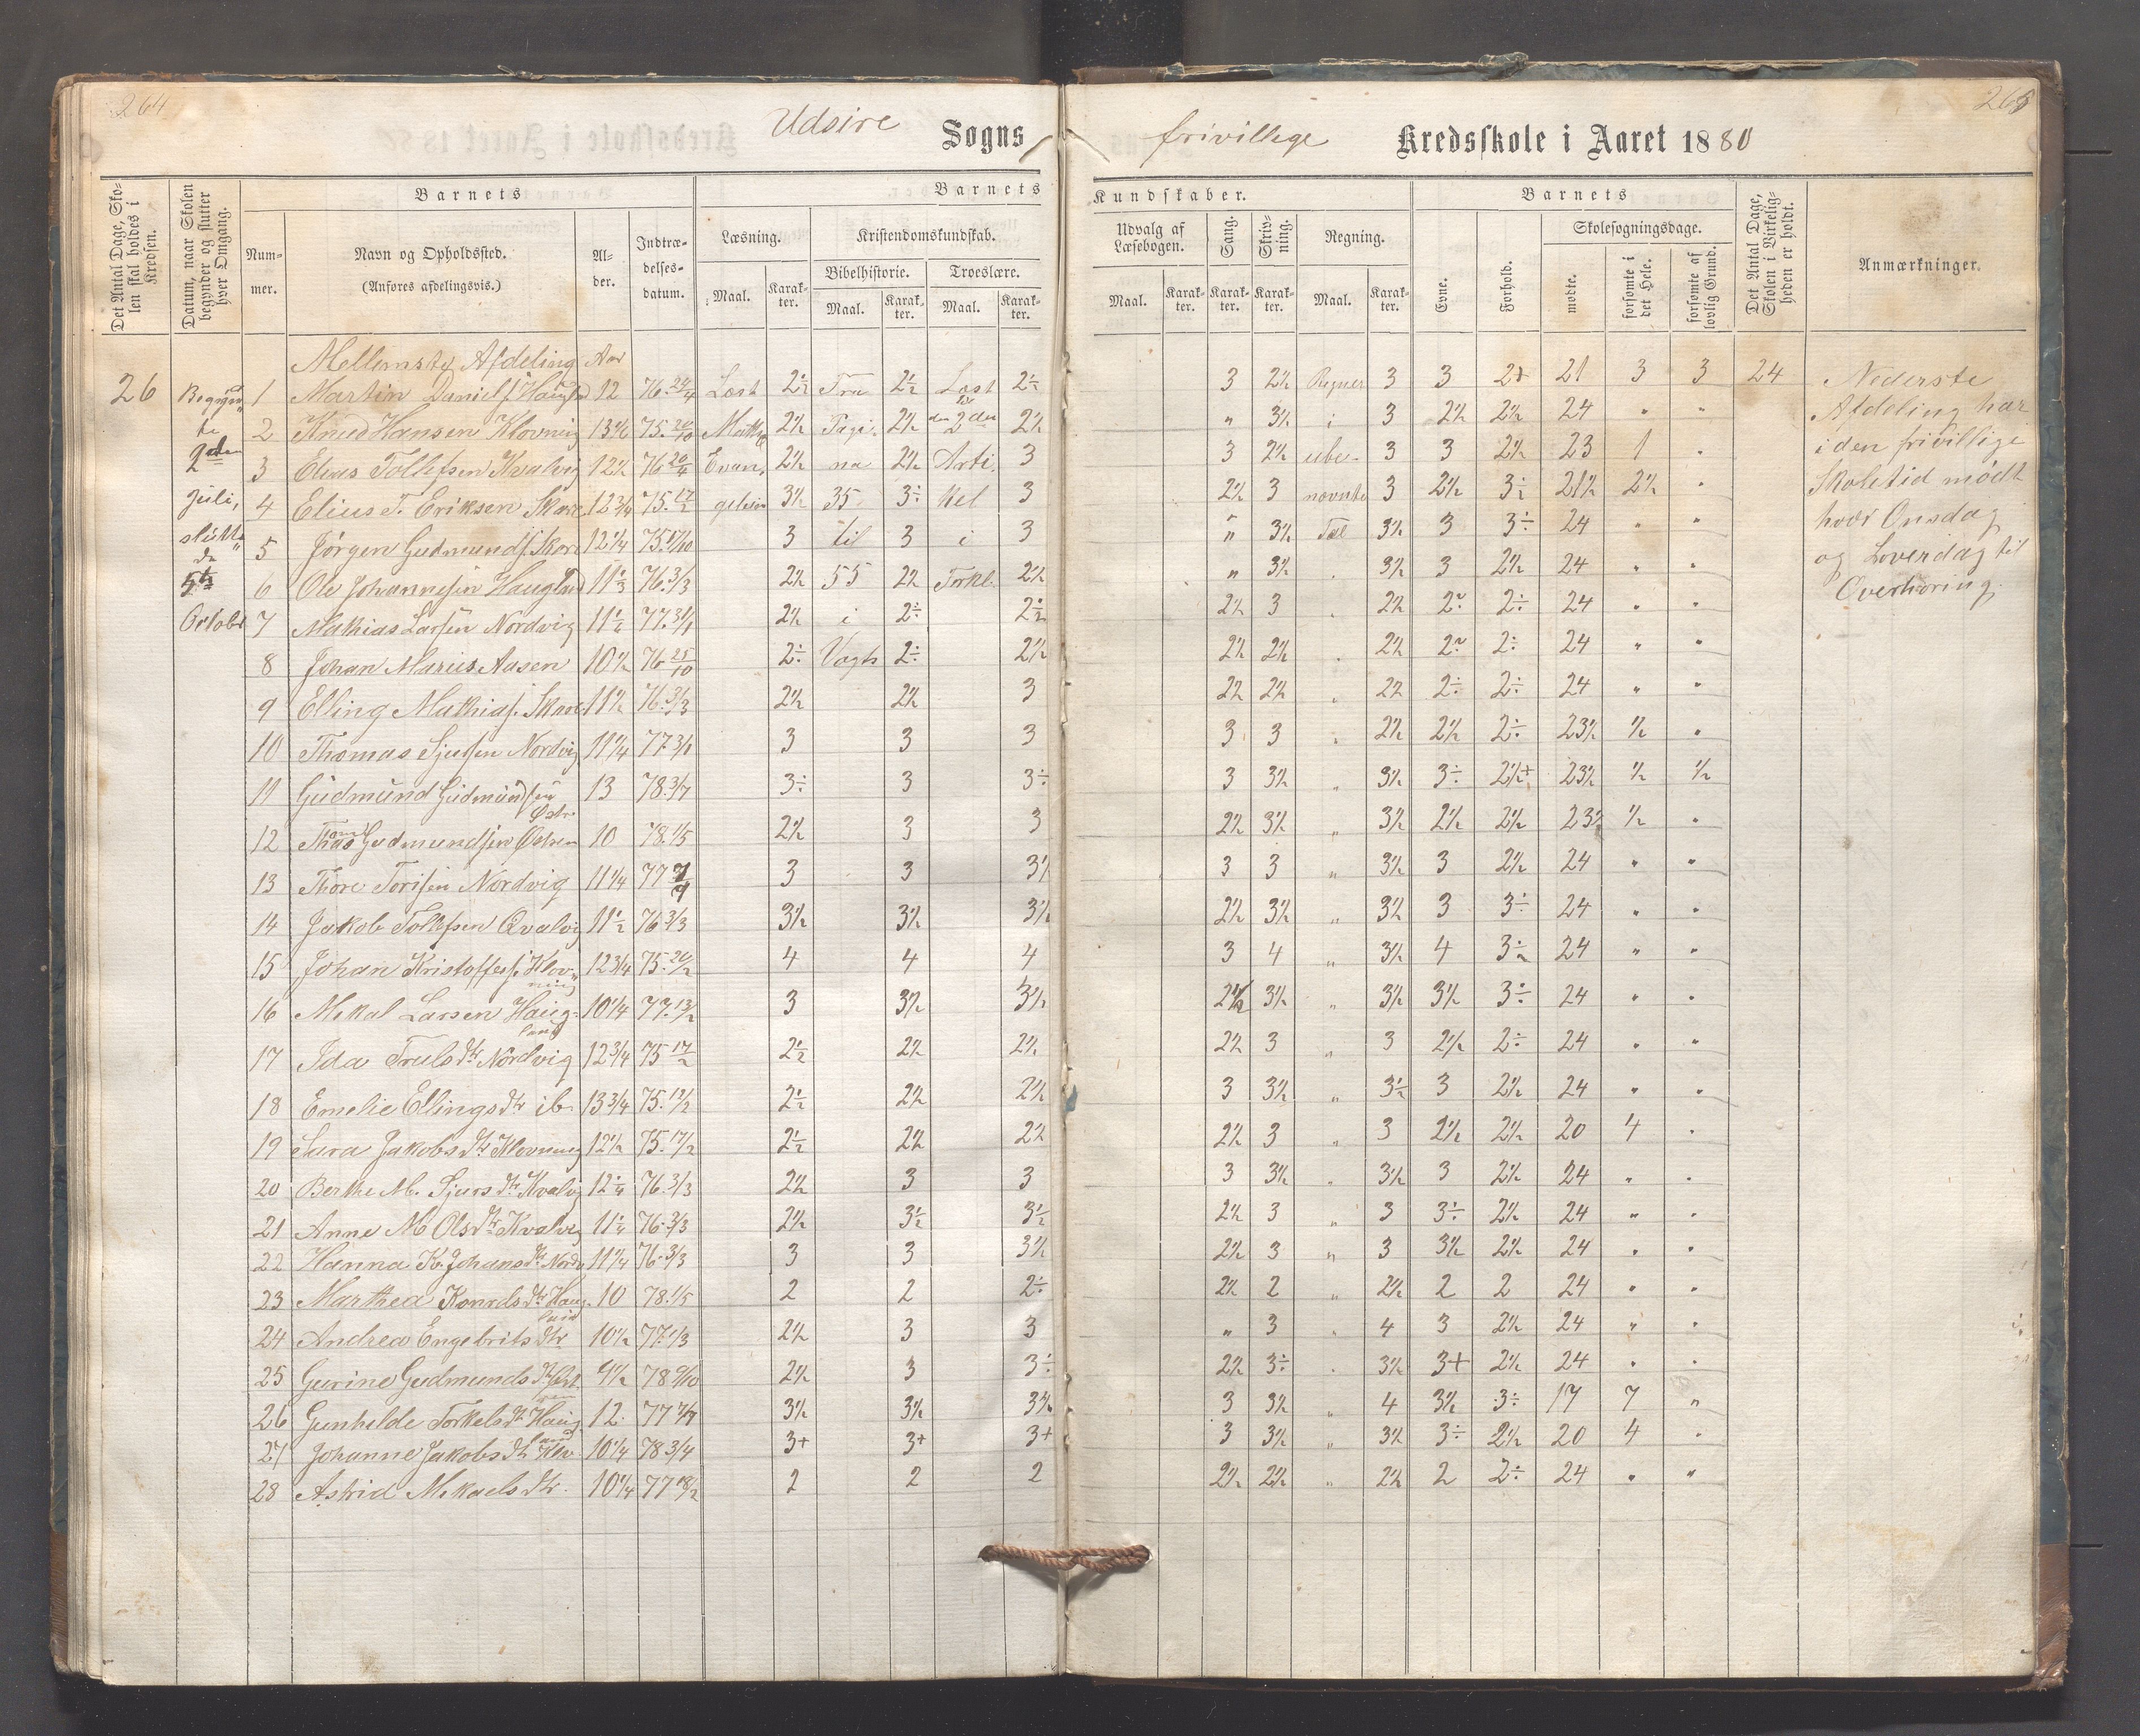 264
Udsire Sogns frivillige Kredsskole i Aaret 1880
265
Det Antal Dage, Skolen skal holdes i Kredsen.
Datum, naar Skolen begynder og slutter hver Omgang.
Barnets
Nummer.
Navn og Opholdssted.
(Anføres afdelingsvis.)
Alder.
Indtrædelsesdatum.
Barnets Kundskaber.
Læsning.
Maal. Karakter.
Kristendomskundskab.
Bibelhistorie. Troeslære.
Maal. Karakter. Maal. Karakter.
Udvalg af Læsebogen.
Maal. Karakter.
Sang. Karakter.
Skrivning. Karakter.
Regning.
Maal. Karakter.
Barnets
Evne. Forhold.
Skolesøgningsdage.
mødte. forsømte i det Hele. forsømte af lovlig Grund.
Det Antal Dage, Skolen i Virkeligheden er holdt.
Anmærkninger.
Mellemste Afdeling Aar
26
Begyndte
2den
Juli,
sluttede
5te
October
1 Martin Daniels. Haugland 12 76 24/4 Læst 2½ Fra 2½ Læst 2½ 3 2½ Regnet 3 3 21 3 3 24
2 Knud Hansen Klovning 75. Math 2½ Pagi 2½ den 2den 2½ " 3½ i 3 2½ 2½ 24 " "
3 Elias Tollefsen Kvalvig 12½ 76 20/4 Evan 2½ na 2½ Arti 3 3 2½ ube- 3 3 2½ 23 1 "
4 Elius T. Eriksen Skare 12¾ 75. 17/2 geliet 3½ 35 3÷ kel 3 2½ 3 nævnte 3 2½ 21½ 2½ "
5 Jørgen Gudmunds. Skare 12¼ 3 til 3 i 3 " 3½ Tal 3½ 3 3÷ 24 " "
6 Ole Johannesen Haugland 76. 3/3 2½ 55 2½ Forkl. 2½ " 3½ 3½ 3 2½ 24 " "
7 Mathias Larsen Nordvig 77. 31/1 2½ i 2÷ 2½ 2½ 3 2½ 2÷ 24 " "
8 Johan Marius Aasen 10½ 76 25/10 2÷ Vogts 2÷ 2½ 2½ 2½ 2½ 2÷ 24 " "
9 Elling Mathias. Skare 11½ 76. 3/3 2½ 2½ 3 2½ 2½ 2½ 2÷ 2÷ 24 " "
10 Thomas Sjursen Nordvig 11¼ 77. 3/1 3 3 3 3 3 2½ 2½ 2÷ 23½ ½ "
11 Gudmund Gudmundsen Østr. 13 78. 3/7 3÷ 3 3÷ 3 3½ 3½ 3÷ 2½+ 23½ ½ ½
12 Gudmundsen Østren 10 78. 1/5 2½ 3 3 2½ 3½ " 3½ 2½ 2½ 23½ ½ "
13 Thore Torisen Nordvig 11¼ 77 7/9 3 3 3½ 3 3 " 3½ 3 2½ 24 " "
14 Jakob Tollefsen Qvalvig 11½ 76 3/3 3½ 3½ 3½ 2½ 3½ " 3½ 3 3÷ 24 " "
15 Johan Kristoffers. Klovning 12¾ 75. 20/2 4 4 4 3 4 " 3½ 4 3÷ 24 " "
16 Mikal Larsen Haugland 10¼ 77. 13/2 3 3½ 3½ 2½ 3½ " 3½ 3½ 3÷ 24 " "
17 Ida Trulsdtr Nordvig 12¾ 75 17/2 2½ 2½ 2½ 2½ 3 " 3 2½ 2÷ 24 " "
18 Emelie Ellingsdtr ib. 13¾ 75. 2½ 2½ 2½ 3 3½ " 3½ 3 2½ 24 " "
19 Sara Jakobsdtr Klovning 12½ 75. 17/2 2½ 2½ 2½ 2½ 3 " 3 2½ 2½ 20 4 "
20 Berthe M. Sjursdtr Kvalvig 12¼ 76. 3/3 2½ 3 3 3 3½ " 3½ 3 2½ 24 " "
21 Anne M Olsdtr Kvalvig 11¼ 76. 3/3 2½ 3½ 3½ 2½ 3 " 3 3÷ 2½ 24 " "
22 Hanna K. Johansdtr Nordv 11¼ 76. 3/3 3 3 3½ 2½ 3 " 3 3½ 2½ 24 " "
23 Marthea Konrdsdtr Haugland 10 78. 1/5 2 2 2÷ 2½ 2 " 2½ 2 2 24 " "
24 Andrea Engebritsdtr 10½ 77. 1/3 2½ 3 3 " 3 " 4 3 2½ 24 " "
25 Gurine Gudmundsdtr 9½ 78 9/10 2½ 3 3÷ 2½ 3÷ " 3½ 3+ 2½ 24 " "
26 Gunhilde Torkelsdtr Haugland 12 77 7/7 3½ 3½ 3½ 3 3½ " 4 3½ 3÷ 17 7 "
27 Johanne Jakobsdtr Klov. 10¼ 78 3/4 3+ 3+ 3+ 3 3½ " 3½ 3÷ 2½ 20 4 "
28 Astrid Mikaelsdtr. 10¼ 77 18/2 2 2 2 2½ 2½ " 2½ 2 2÷ 24 " "
Nederste
Afdeling har
i den frivillige
Skoletid mødt
hver Onsdag
og Løverdag til
Overhøring.